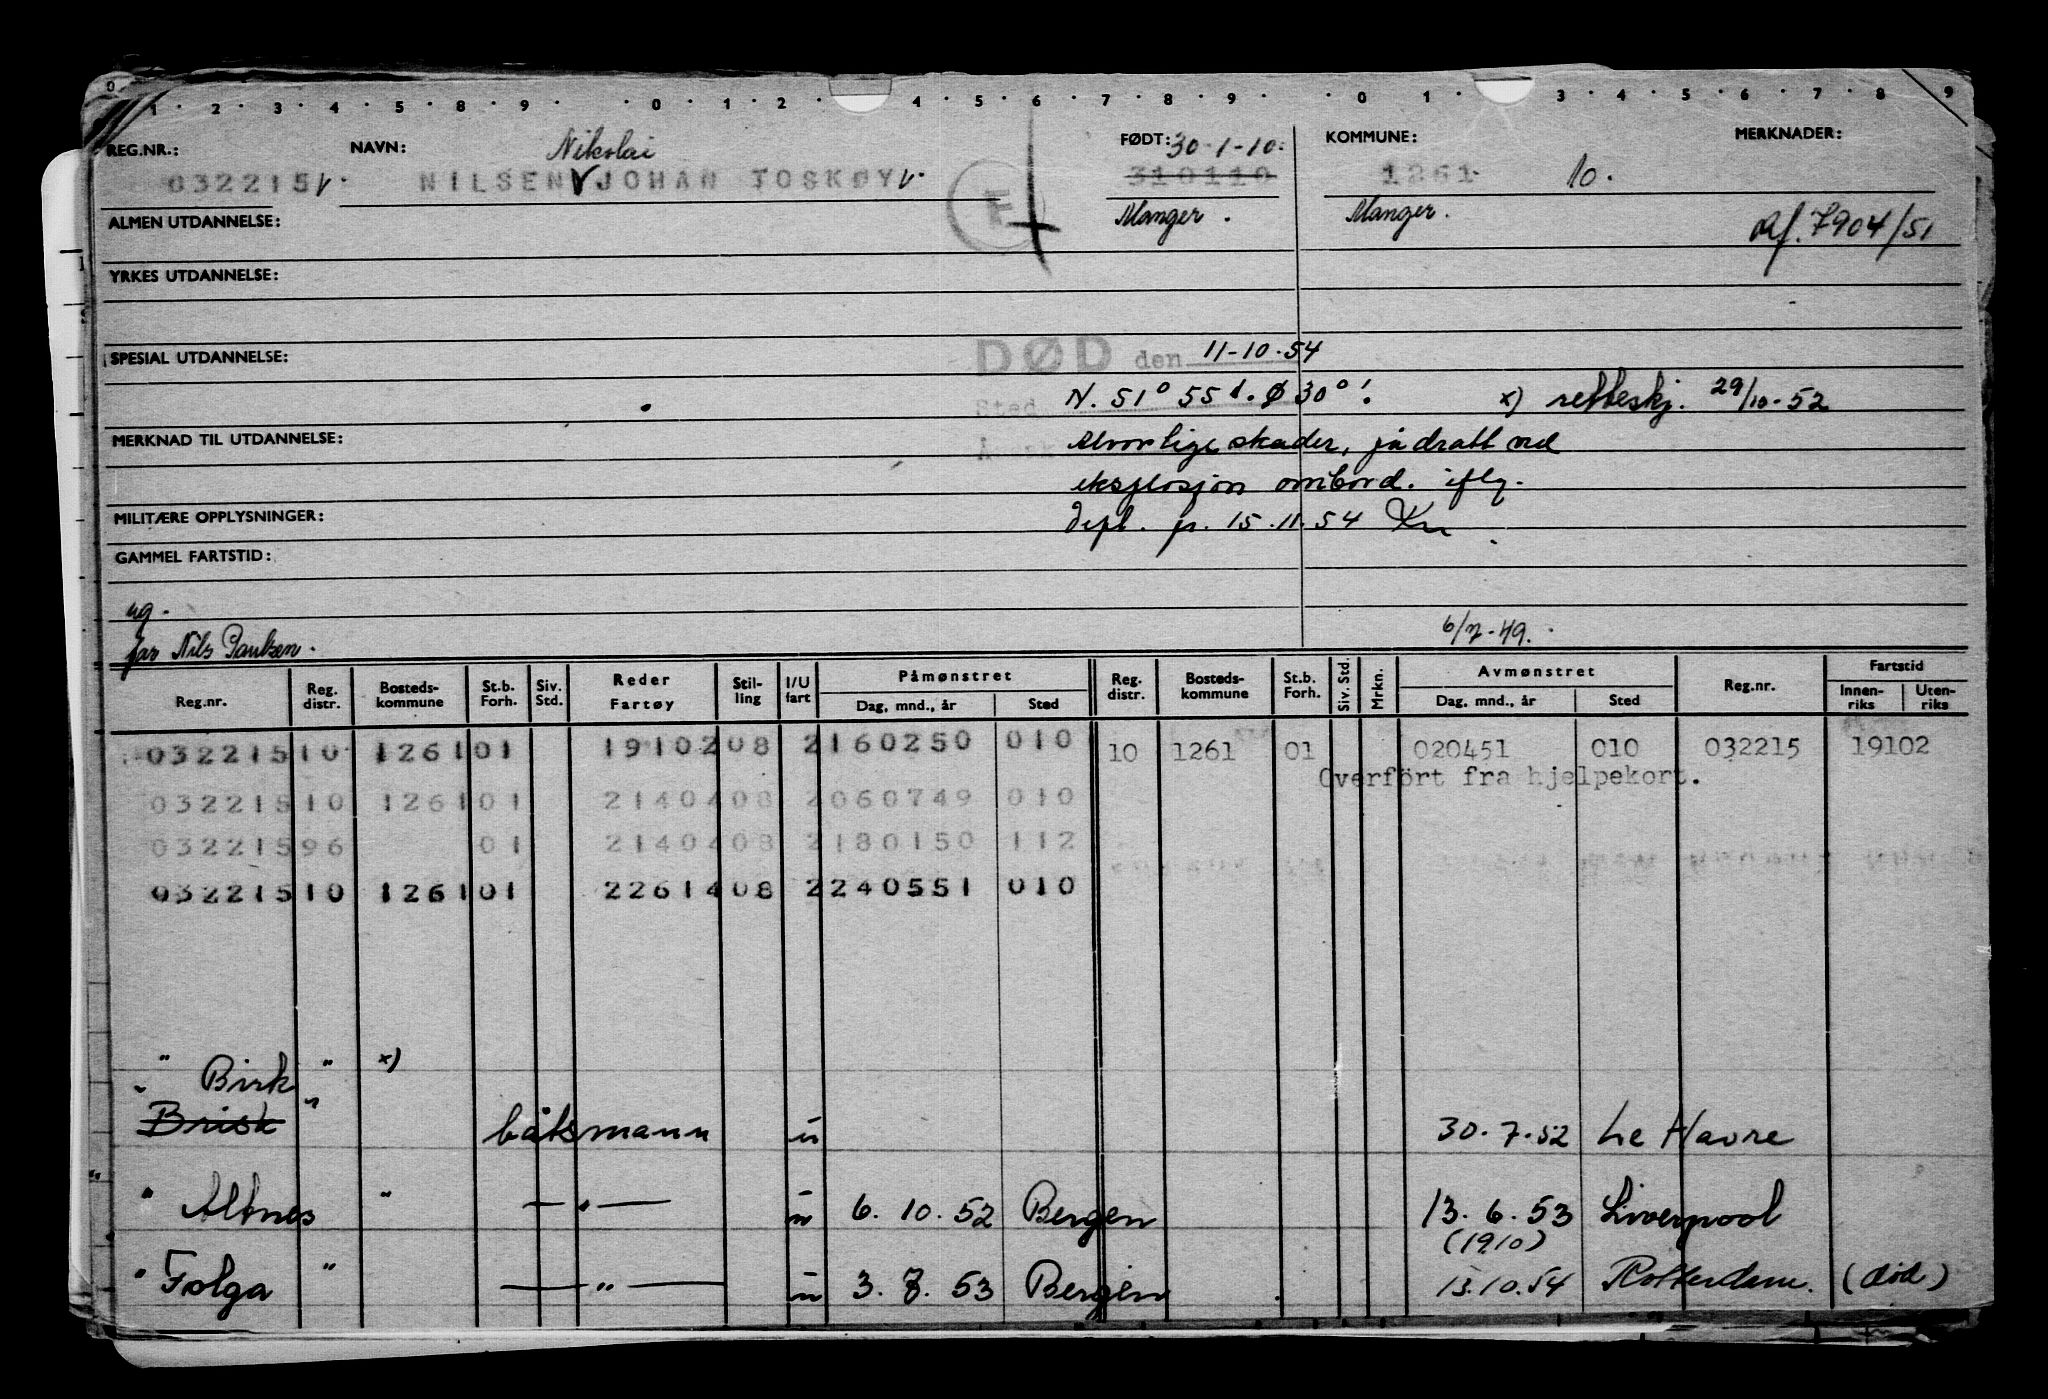 0 1 2 3 4 5 8 9 0 1 2 4 5 6 7 8 9 0 1 3 4 5 6 7 8 9
REG.NR.: NAVN: Nikolai FØDT: 30-1-10. KOMMUNE: MERKNADER:
032215 NILSEN JOHAN TOSKØY F 310110 1261 10.
ALMEN UTDANNELSE: Manger. Manger. 7904/51
YRKES UTDANNELSE:
SPESIAL UTDANNELSE: DØD den 11-10-54
Sted N. 51° 55'. Ø 30°! x) retteskj. 29/10-52
MERKNAD TIL UTDANNELSE: Alvorlige skader, pådratt ved
eksplosjon ombord. iflg.
MILITÆRE OPPLYSNINGER: 15.11.54
GAMMEL FARTSTID:
ug.
far Nils Paulsen. 6/7-49.
Reg.nr. Reg. distr. Bosteds-kommune St.b. Forh. Siv. Std. Reder Fartøy Stil-ling I/U fart Påmønstret Dag, mnd., år Sted Reg. distr. Bosteds-kommune St.b. Forh. Siv. Std. Mrkn. Avmønstret Dag, mnd., år Sted Reg.nr. Fartstid Innen-riks Uten-riks
032215 10 1261 01 19102 08 2 160250 010 10 1261 01 020451 010 032215 19102
Overført fra hjelpekort.
032215 10 1261 01 21404 08 2 060749 010
032215 96 01 21404 08 2 180150 112
032215 10 1261 01 22614 08 2 240551 010
" Birk " x)
Brisk " båtsmann u 30.7.52 Le Havre
" Altnes " — " — u 6.10.52 Bergen 13.6.53 Liverpool
(1910)
" Folga " — " — u 3.7.53 Bergen 13.10.54 Rotterdam. (død)